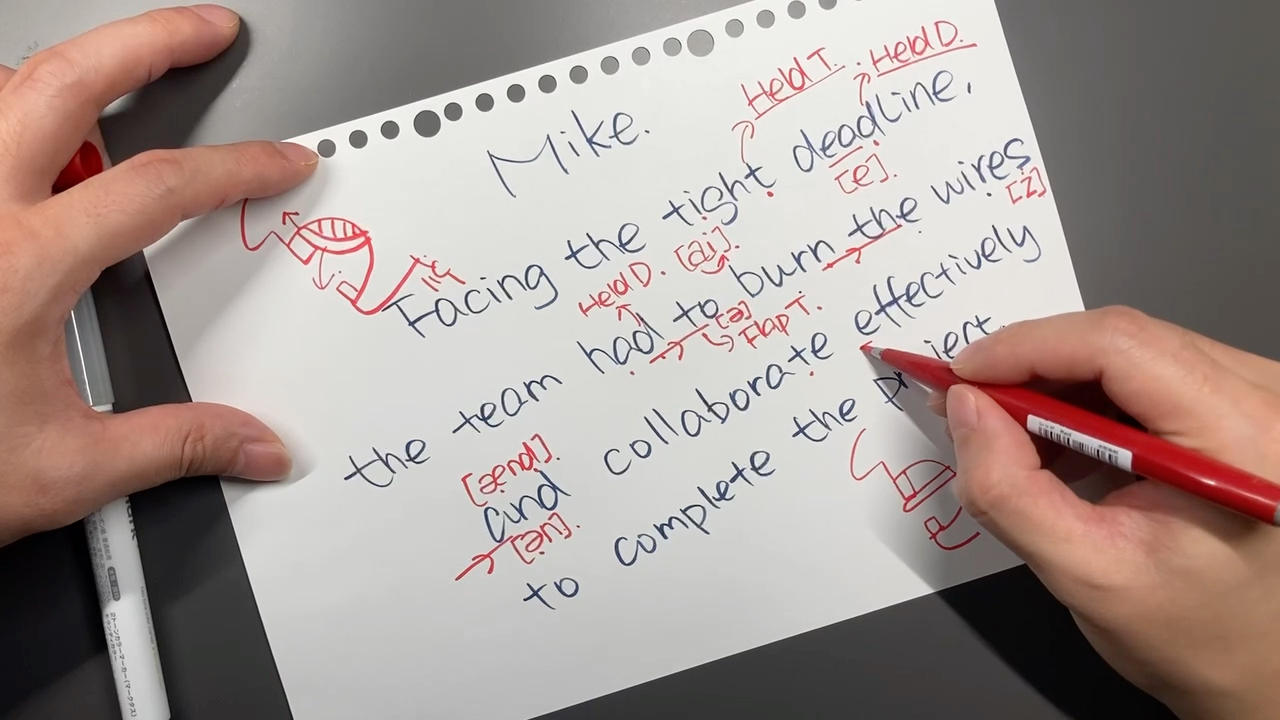 Mike.
Held T. Held D.
Facing the tight deadline,
Held D. [ai]. [e].
the team had to burn the wires
[z]
[ə] Flap T.
[ænd].
and collaborate effectively
[ən].
to complete the